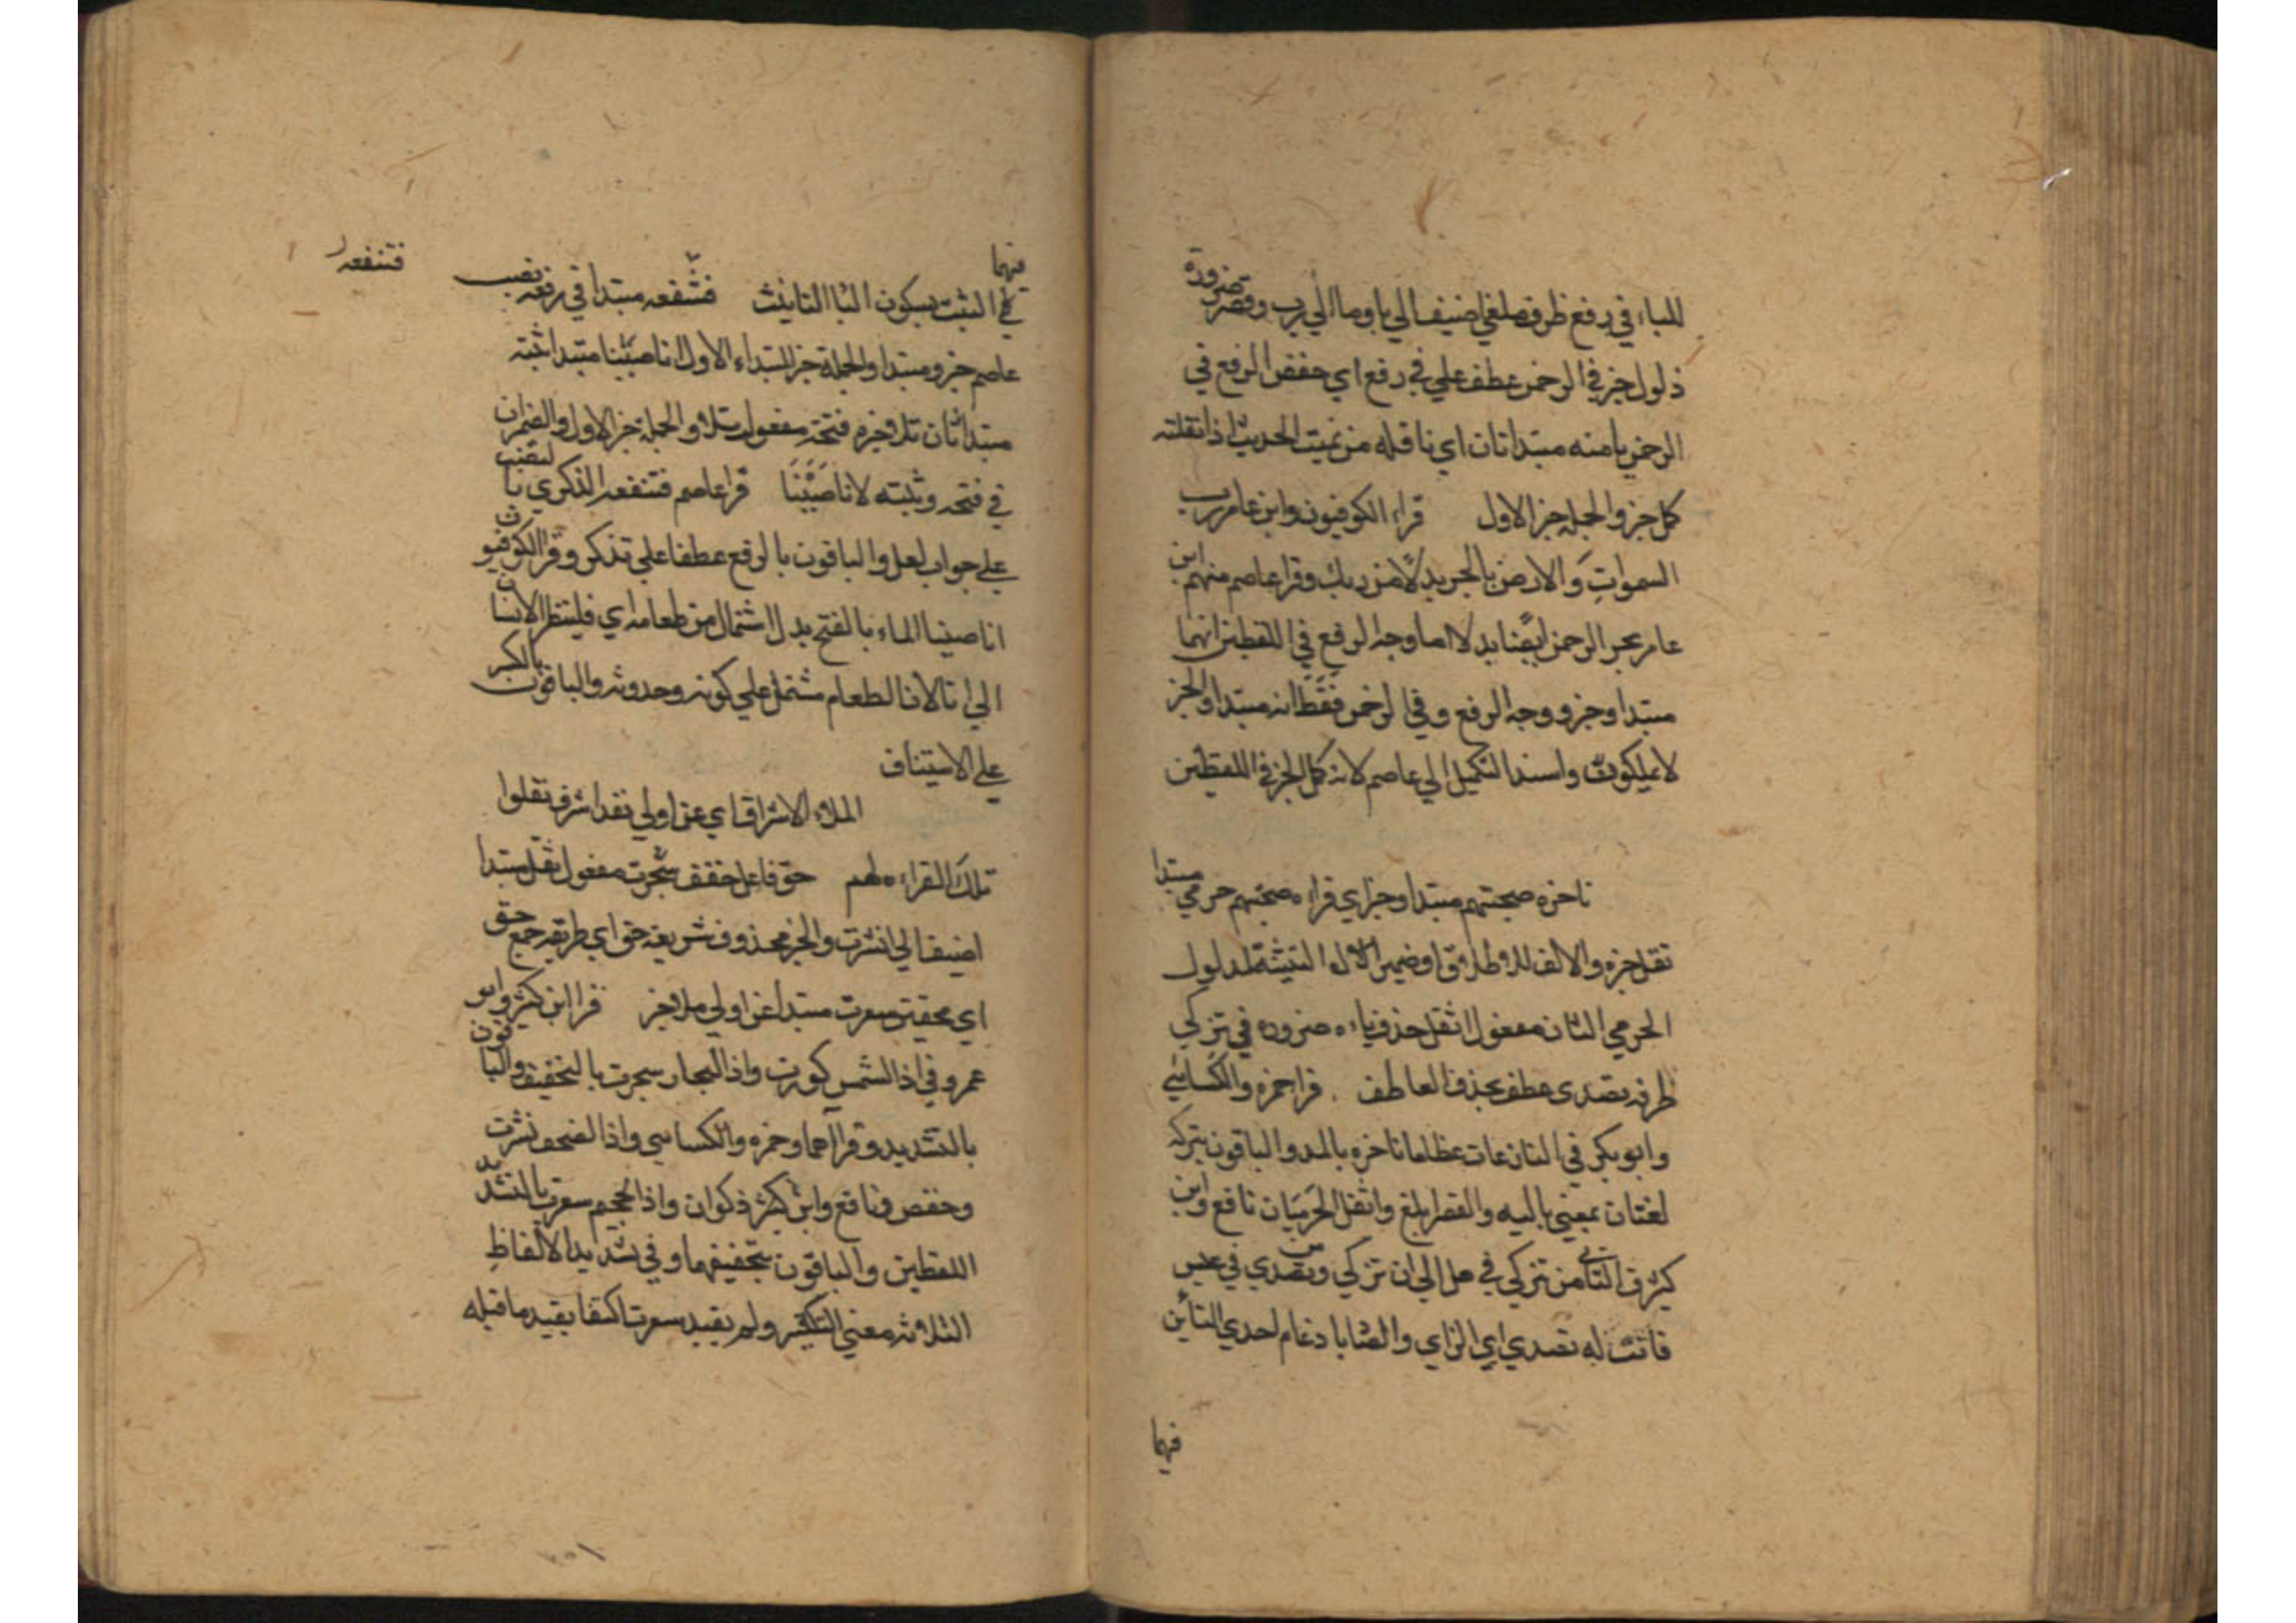 للباء في رفع ظرف ملغي اضيف الي با وما الي رب وقصر ضرورة
ذلول خبر في الرحمن عطف علي في رفع اي خفض الرفع في
الرحمن نامنه مبتدا ثان اي ناقله من نميت الحديث اذا نقلته
كمل خبر والجملة خبر الاول قراء الكوفيون وابن عامر رب
السموات والارض بالجر بدلا من ربك وقرا عاصم منهم ابن
عامر بجر الرحمن ايضا بدلا اما وجه الرفع في اللفظين انهما
مبتدا وخبر ووجه الرفع وفي الرحمن فقط انه مبتدا والخبر
لا يملكون واسند التكميل الي عاصم لانه كمل الجر في اللفظين
ناخره صحبتهم مبتدا وخبر اي قراءه صحبتهم حرمي مبتدا
ثقل خبره والالف للاطلاق او ضمير التثنية لمدلول
الحرمي الثان مفعول اثقل حذف ياءه ضروره في تزكي
ظرفه تصدى عطف بحذف العاطف . قرا حمزه والكسائي
وابو بكر في النازعات عظاما ناخره بالمد والباقون بتركه
لغتان بمعني باليه والقصر ابلغ واثقل الحرميان نافع وابن
كثير التا من تزكي في هل الي ان تزكي وتصدي في عبس
فانت له تصدي اي الزاي والصاد بادغام احدي التائين
فيها
فيهما
في الثبت بسكون الثا الثانيث فتنفعه مبتدا في رفعه نصب
فتنفعه
عاصم خبر ومبتدا والجملة خبر المبتداء الاول انا صببنا مبتدا ثبته
مبتدا ثان تلا خبره فتحه مفعول تلا والجملة خبر الاول والضميران
في فتحه وثبته لانا صببنا قرا عاصم فتنفعه الذكري بالنصب
علي جواب لعل والباقون بالرفع عطفا علي تذكر وقرا الكوفيون
انا صببنا الماء بالفتح بدل اشتمال من طعامه اي فلينظر الانسان
الي انا لان الطعام مشتمل علي كونه وحدوثه والباقون بالكسر
علي الاستيناف
الملاء الاشراف اي عن اولي نقد اشرف نقلوا
تلك القراءه لهم حق فاعل خفف سجرت مفعول ثقل مبتدا
اضيف الي نشرت والخبر محذوف شريعة حق اي طريقه جمع حق
اي محقين سعرت مبتدا عن اولي ملا خبر قرا ابن كثير وابو
عمرو في اذا الشمس كورت واذا البحار سجرت بالتخفيف والباقون
بالتشديد وقرا هما وحمزه والكسائي واذا الصحف نشرت
وحفص ونافع وابن كثير ذكوان واذا الجحيم سعرت بالتشديد
اللفظين والباقون بتخفيفهما وفي تشديد الالفاظ
الثلاثه معني التكثير ولم يقيد سعرت اكتفا بقيد ما قبله